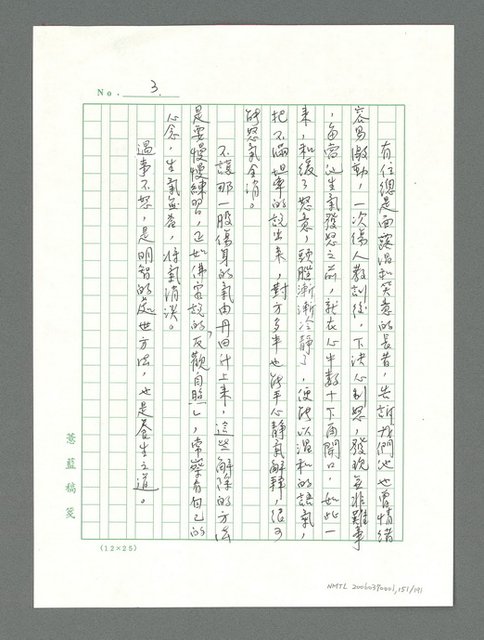 No. 3.
有位總是面露溫和笑意的長者，告訴我們他也曾情緒
容易激動，一次傷人教訓後，下決心制怒，發現並非難事
，每當他生氣發怒之前，就在心中數十下再開口，如此一
來，和緩了怒意，頭腦漸漸冷靜了，便能以溫和的語氣，
把不滿坦率的說出來，對方多半也能平心靜氣解釋，很可
能怒氣全消。
不讓那一股傷身的氣由丹田升上來，這些解除的方法
是要慢慢練習，正如佛家說的「反觀自照」，常察看自己的
心念，生氣無益，將氣消淡。
遇事不怒，是明智的處世方法，也是養生之道。
薏藍稿箋
(12×25)
NMTL 20060390001,151/191